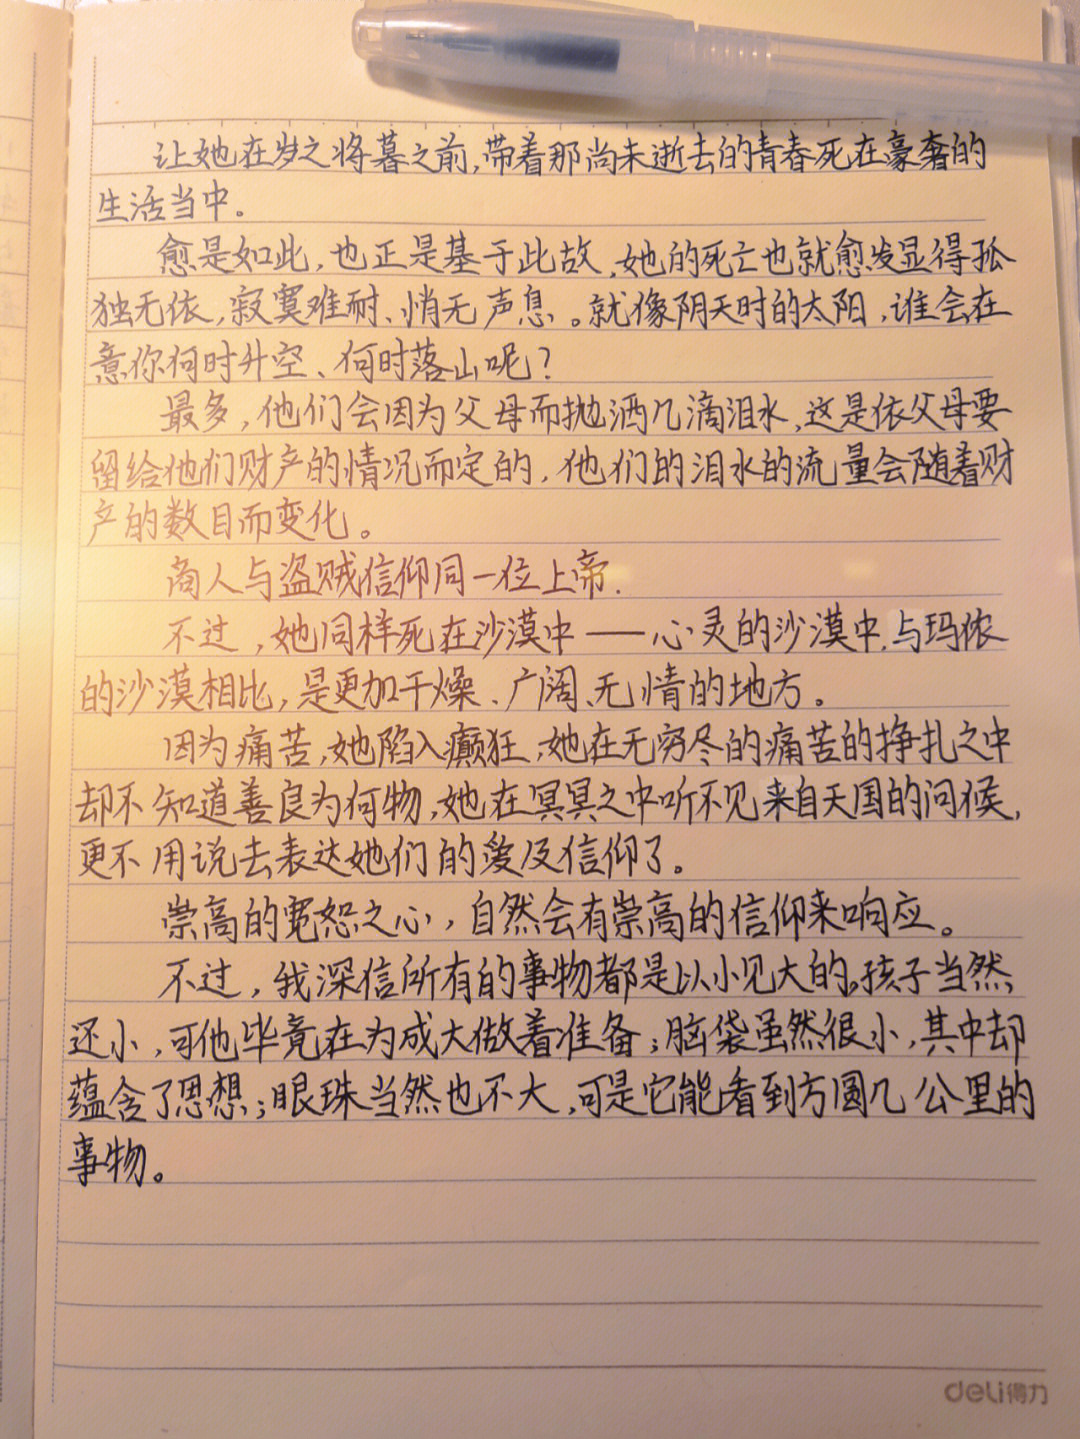 让她在岁之将暮之前,带着那尚未逝去的青春死在豪奢的
生活当中。
愈是如此,也正是基于此故,她的死亡也就愈发显得孤
独无依,寂寞难耐、悄无声息。就像阴天时的太阳,谁会在
意你何时升空、何时落山呢?
最多,他们会因为父母而抛洒几滴泪水,这是依父母要
留给他们财产的情况而定的,他们的泪水的流量会随着财
产的数目而变化。
商人与盗贼信仰同一位上帝.
不过,她同样死在沙漠中——心灵的沙漠中,与玛侬
的沙漠相比,是更加干燥、广阔、无情的地方。
因为痛苦,她陷入癫狂,她在无穷尽的痛苦的挣扎之中
却不知道善良为何物,她在冥冥之中听不见来自天国的问候,
更不用说去表达她们的爱及信仰了。
崇高的宽恕之心,自然会有崇高的信仰来响应。
不过,我深信所有的事物都是以小见大的。孩子当然
还小,可他毕竟在为成大做着准备;脑袋虽然很小,其中却
蕴含了思想;眼珠当然也不大,可是它能看到方圆几公里的
事物。
deli得力